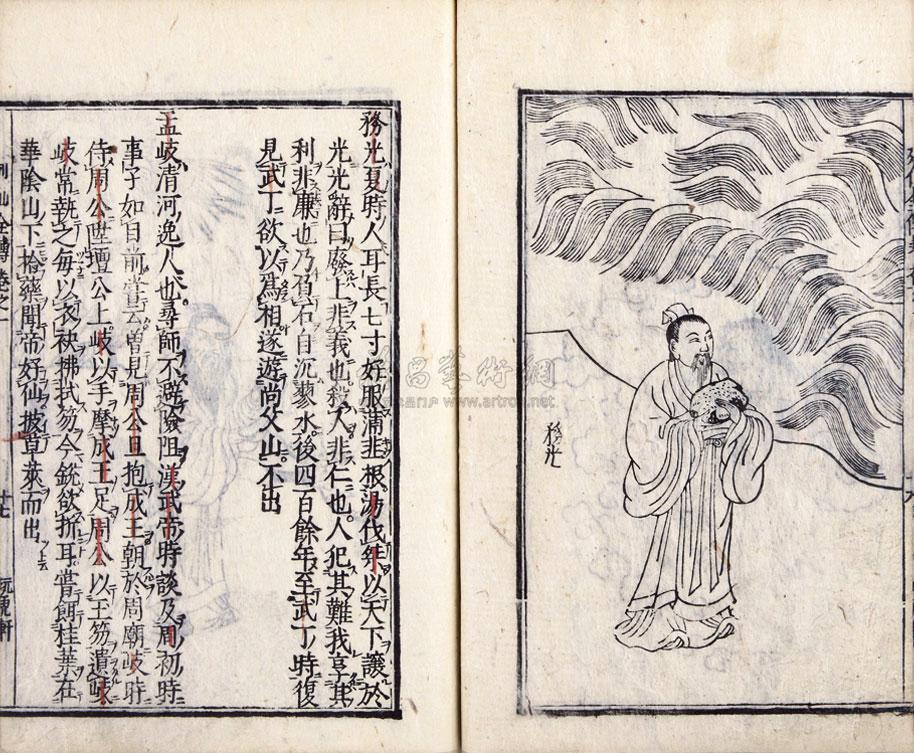 務光
務光夏時人耳長七寸好服蒲韭根湯伐桀以天下讓於
光光辭曰廢上非義也殺人非仁也人犯其難我享其
利非廉也乃負石自沉蓼水後四百餘年至武丁時復
見武丁欲以爲相遂遊尚父山不出
孟岐清河逸人也尋師不避險阻漢武帝時談及周初時
事了如目前嘗云曽見周公旦抱成王朝於周廟岐時
侍周公陞壇公上岐以手摩成王足周公以王笏遺岐
岐常執之每以衣袂拂拭笏今銳欲折耳嘗餌桂葉在
華陰山下拾藥聞帝好仙披草萊而出
列仙全傳卷之一
十七
玩虎軒
www.artron.net